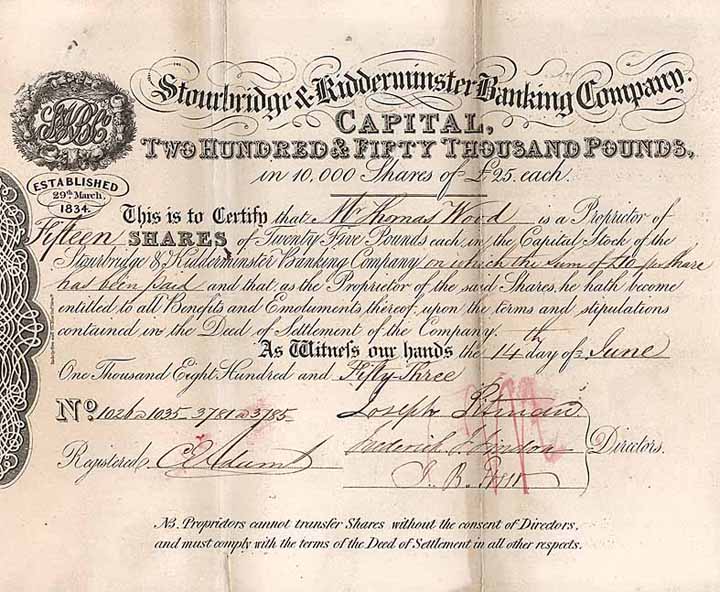 Stourbridge & Kidderminster Banking Company.
CAPITAL,
TWO HUNDRED & FIFTY THOUSAND POUNDS,
in 10,000 Shares of £25 each.
ESTABLISHED
29th March,
1834.
This is to Certify that Mr Thomas Wood is a Proprietor of
Fifteen SHARES of Twenty Five Pounds each in the Capital Stock of the
Stourbridge & Kidderminster Banking Company on which the sum of £10 per share
has been paid and that, as the Proprietor of the said Shares, he hath become
entitled to all Benefits and Emoluments thereof, upon the terms and stipulations
contained in the Deed of Settlement of the Company.
As Witness our hands the 14th day of June
One Thousand Eight Hundred and Fifty Three
No. 1026 a 1035 - 3781 a 3785
Joseph Pitman
Frederick
Directors.
Registered,
J. B.
NB. Proprietors cannot transfer Shares without the consent of Directors,
and must comply with the terms of the Deed of Settlement in all other respects.